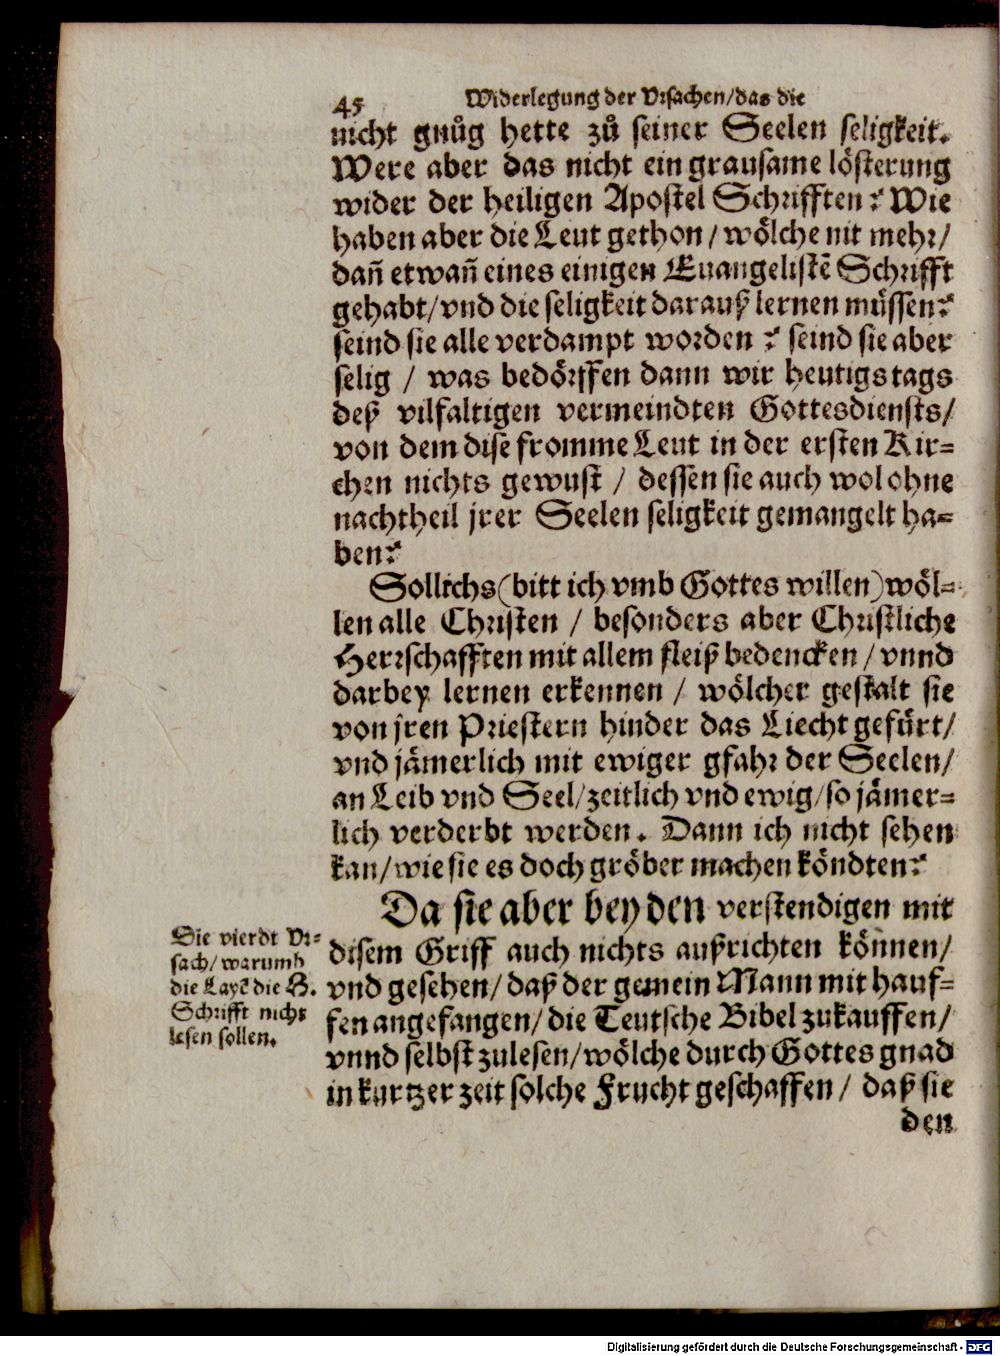 45 Widerlegung der Vrsachen/das die
nicht gnůg hette zů seiner Seelen seligkeit.
Were aber das nicht ein grausame lösterung
wider der heiligen Apostel Schrifften? Wie
haben aber die Leut gethon/wölche nit mehr/
dañ etwañ eines einigen Euangelistẽ Schrifft
gehabt/vnd die seligkeit darauß lernen müssen?
seind sie alle verdampt worden? seind sie aber
selig / was bedörffen dann wir heutigs tags
deß vilfaltigen vermeindten Gottesdiensts/
von dem dise fromme Leut in der ersten Kir=
chen nichts gewust / dessen sie auch wol ohne
nachtheil jrer Seelen seligkeit gemangelt ha=
ben?
Sollichs (bitt ich vmb Gottes willen) wöl=
len alle Christen / besonders aber Christliche
Herrschafften mit allem fleiß bedencken / vnnd
darbey lernen erkennen / wölcher gestalt sie
von jren Priestern hinder das Liecht gefürt/
vnd jämerlich mit ewiger gfahr der Seelen/
an Leib vnd Seel/zeitlich vnd ewig/so jämer=
lich verderbt werden. Dann ich nicht sehen
kan/wie sie es doch gröber machen köndten?
Da sie aber bey den verstendigen mit
disem Griff auch nichts außrichten können/
vnd gesehen/daß der gemein Mann mit hauf=
fen angefangen/die Teutsche Bibel zukauffen/
vnnd selbst zulesen/wölche durch Gottes gnad
in kurtzer zeit solche Frucht geschaffen / daß sie
den
Die vierdt Vr=
sach/warumb
die Layẽ die H.
Schrifft nicht
lesen sollen.
Digitalisierung gefördert durch die Deutsche Forschungsgemeinschaft - DFG